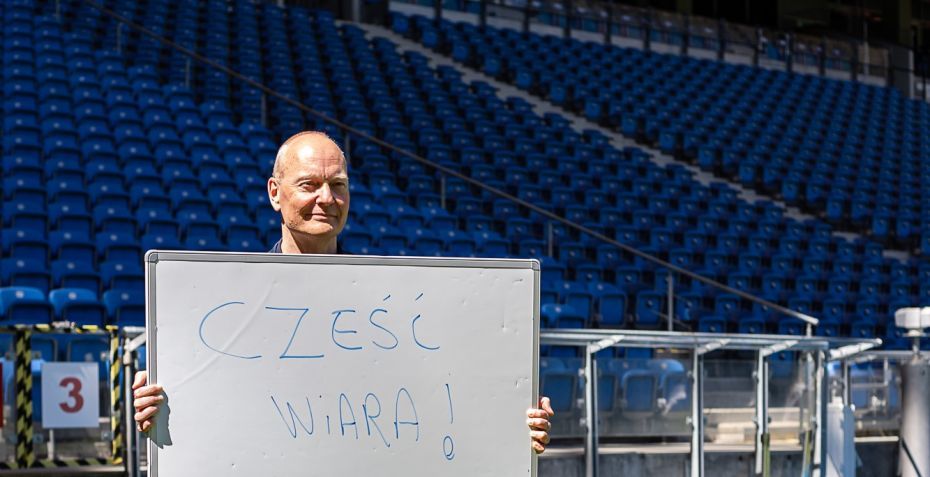 CZEŚĆ
WiARA!
3